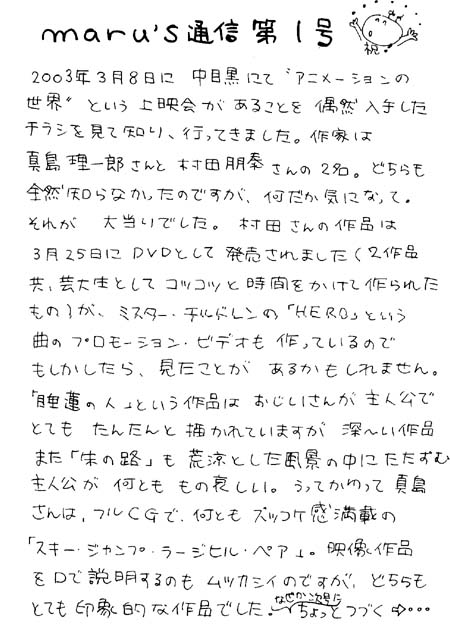 maru's通信 第1号
祝
2003年3月8日に 中目黒にて"アニメーションの
世界"という上映会があることを 偶然入手した
チラシを見て知り、行ってきました。作家は
真島理一郎さんと 村田朋泰さんの2名。どちらも
全然知らなかったのですが、何だか気になって。
それが 大当りでした。村田さんの作品は
3月25日にDVDとして 発売されました(2作品
共、芸大生としてコツコツと時間をかけて作られた
もの)が、ミスター・チルドレンの「HERO」という
曲のプロモーション・ビデオも 作っているので
もしかしたら、見たことが あるかもしれません。
「睡蓮の人」という作品は おじいさんが主人公で
とても たんたんと描かれていますが 深〜い作品
また「朱の路」も 荒涼とした風景の中にたたずむ
主人公が 何とも もの哀しい。うってかわって 真島
さんは、フルCGで、何とも ズッコケ感満載の
「スキー・ジャンプ・ラージヒル・ペア」。映像作品
を口で説明するのも ムツカシイのですが、どちらも
とても印象的な作品でした。なぜか次号にちょっとつづく⇨・・・